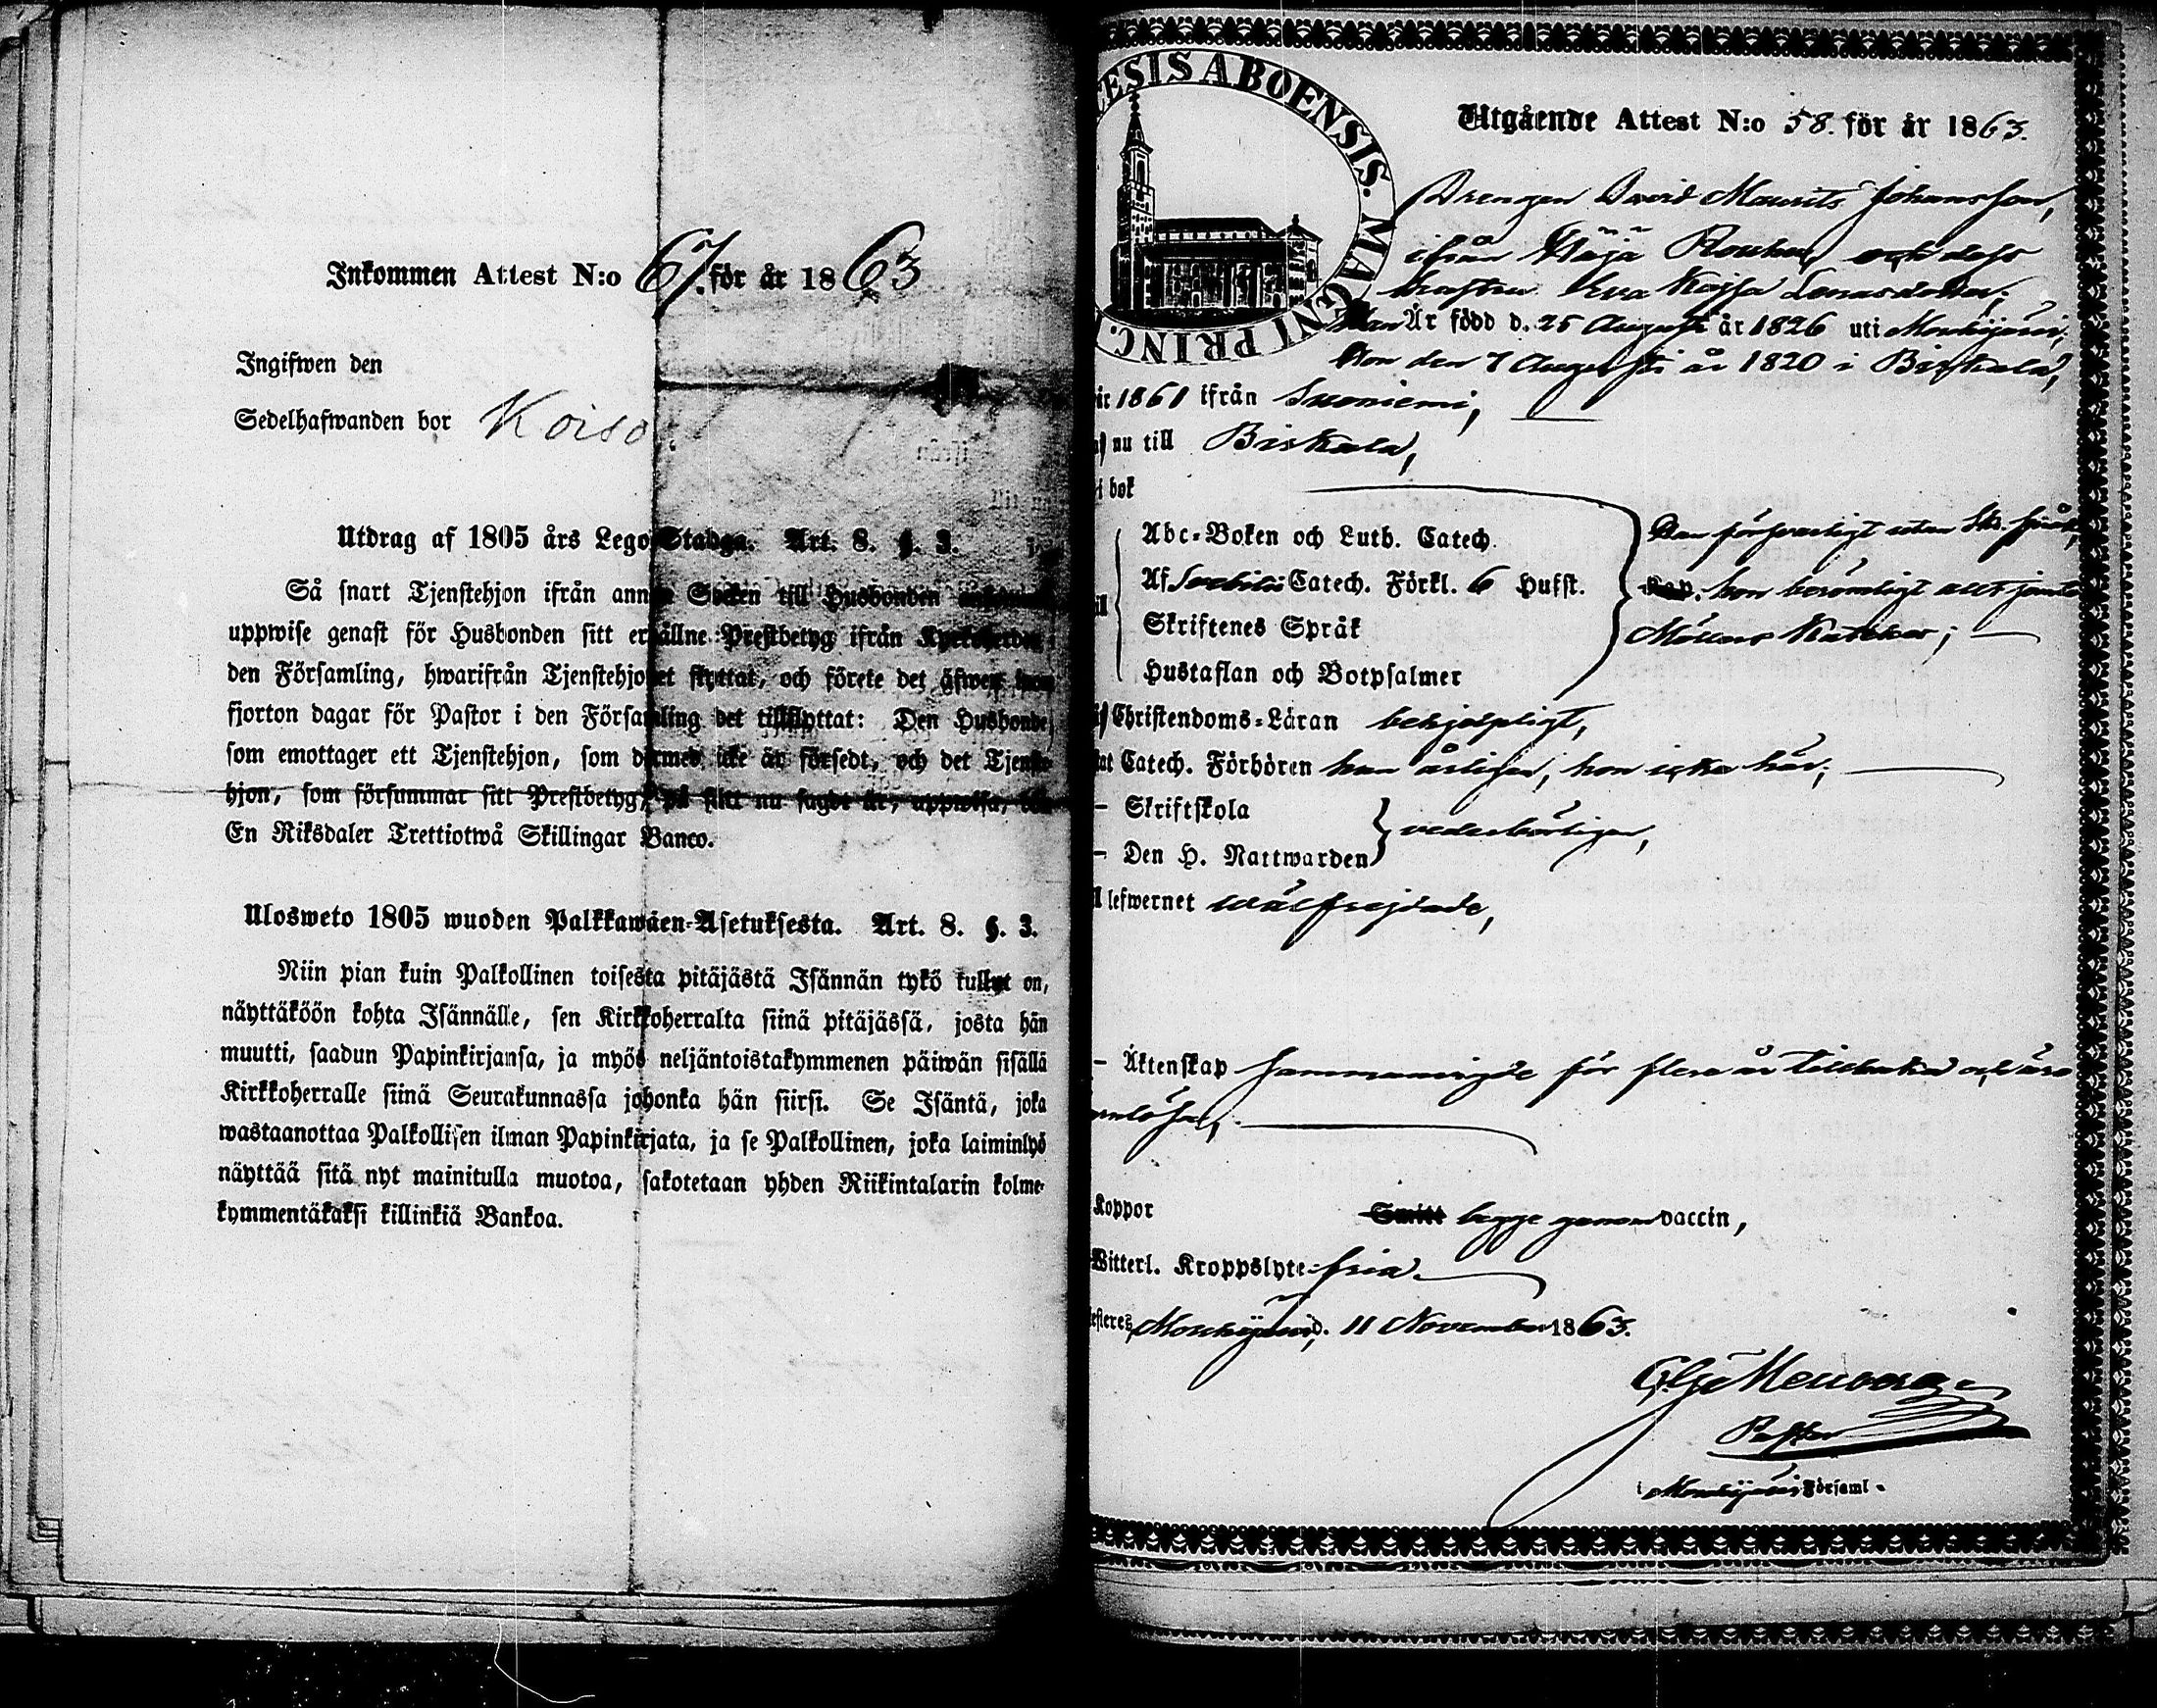 Inkommen Attest N:o 67. för år 1863
Ingifwen den
Sedelhafwanden bor Koiso
Utdrag af 1805 års Lego Stadga. Art. 8. §. 3.
Så snart Tjenstehjon ifrån annan Socken till Husbonden
uppwise genast för Husbonden sitt erhållne Prestbetyg ifrån Kyrkoherden
den Församling, hwarifrån Tjenstehjonet flyttat, och förete det äfwen inom
fjorton dagar för Pastor i den Församling det tillflyttat: Den Husbonde,
som emottager ett Tjenstehjon, som dermed icke är försedt, och det Tjenste-
hjon, som försummar sitt Prestbetyg, på sätt nu sagdt är, uppwisa,
En Riksdaler Trettiotwå Skillingar Banco.
Ulosweto 1805 wuoden Palkkawäen-Asetuksesta. Art. 8. §. 3.
Niin pian kuin Palkollinen toisesta pitäjästä Isännän tykö kullut on,
näyttäköön kohta Isännälle, sen Kirkkoherralta siinä pitäjässä, josta hän
muutti, saadun Papinkirjansa, ja myös neljäntoistakymmenen päiwän sisällä
Kirkkoherralle siinä Seurakunnassa johonka hän siirsi. Se Isäntä, joka
wastaanottaa Palkollisen ilman Papinkirjata, ja se Palkollinen, joka laiminlyö
näyttää sitä nyt mainitulla muotoa, sakotetaan yhden Riikintalarin kolme-
kymmentäkaksi killinkiä Bankoa.
ESIS ABOENSIS. MAGNI PRINC.
Utgående Attest N:o 58. för år 1863.
Drengen David Maurits Johansson,
ifrån Häijä Rouhu, och dess
hustru Eva Kajsa Lenasdotter;
Han Är född d. 25 Augusti år 1826 uti Mouhijärvi,
Hon den 7 Augusti år 1820 i Birkala,
år 1861 ifrån Suoniemi,
nu till Birkala,
i bok
Abc-Boken och Luth. Catech.
Af Svebilii Catech. Förkl. 6 Hufst.
Skriftenes Språk
Hustaflan och Botpsalmer
Han försvarligt utan Skr. språk,
hon berömligt allt jemte
Möllers Kateches;
Christendoms-Läran behjelpligt,
Catech. Förhören han årligen, hon icke här;
– Skriftskola
– Den H. Nattwarden
vederbörligen,
lefwernet wälfrejdade,
– Äktenskap sammanvigde för flera år tillbaka och äro
Koppor Smitt begge genom vaccin,
Witterl. Kroppslyte fria.
Mouhijärvi d. 11 November 1863.
Pastor
i Mouhijärvi Församl.